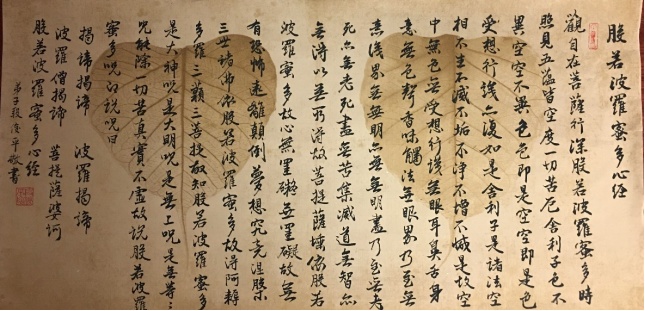 般若波羅蜜多心經
觀自在菩薩行深般若波羅蜜多時
照見五蘊皆空度一切苦厄舍利子色不
異空空不異色色即是空空即是色
受想行識亦復如是舍利子是諸法空
相不生不滅不垢不淨不增不減是故空
中無色無受想行識無眼耳鼻舌身
意無色聲香味觸法無眼界乃至無
意識界無無明亦無無明盡乃至無老
死亦無老死盡無苦集滅道無智亦
無得以無所得故菩提薩埵依般若
波羅蜜多故心無罣礙無罣礙故無
有恐怖遠離顛倒夢想究竟涅槃
三世諸佛依般若波羅蜜多故得阿耨
多羅三藐三菩提故知般若波羅蜜多
是大神咒是大明咒是無上咒是無等々
咒能除一切苦真實不虛故說般若波羅
蜜多咒即說咒曰
揭諦揭諦 波羅揭諦
波羅僧揭諦 菩提薩婆訶
般若波羅蜜多心經
弟子 平敬書